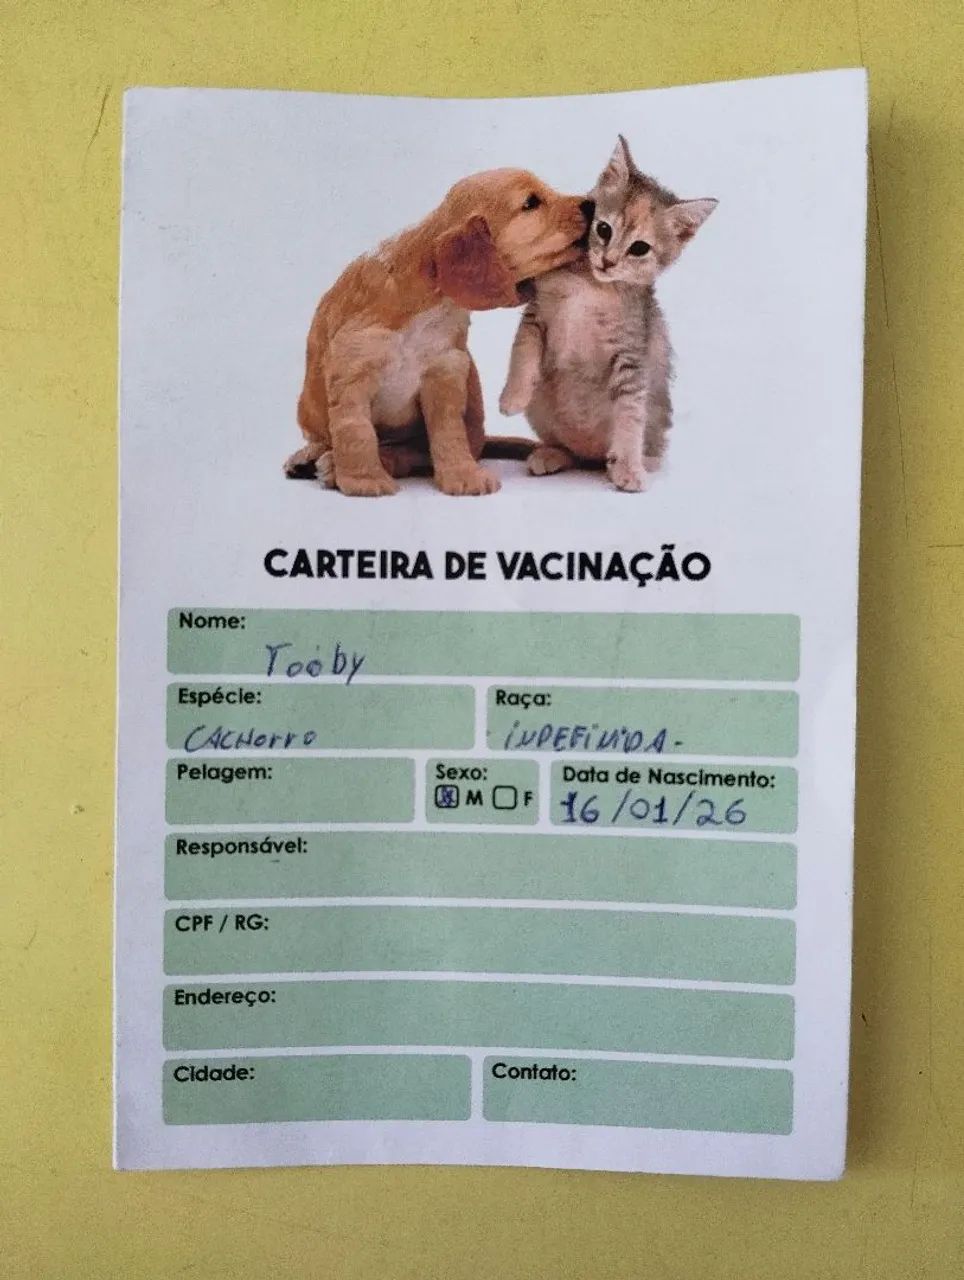 CARTEIRA DE VACINAÇÃO
Nome:
Tooby
Espécie: Raça:
CACHorro iNDEFiNiDA-
Pelagem: Sexo: Data de Nascimento:
M F 16/01/26
Responsável:
CPF / RG:
Endereço:
Cidade: Contato: